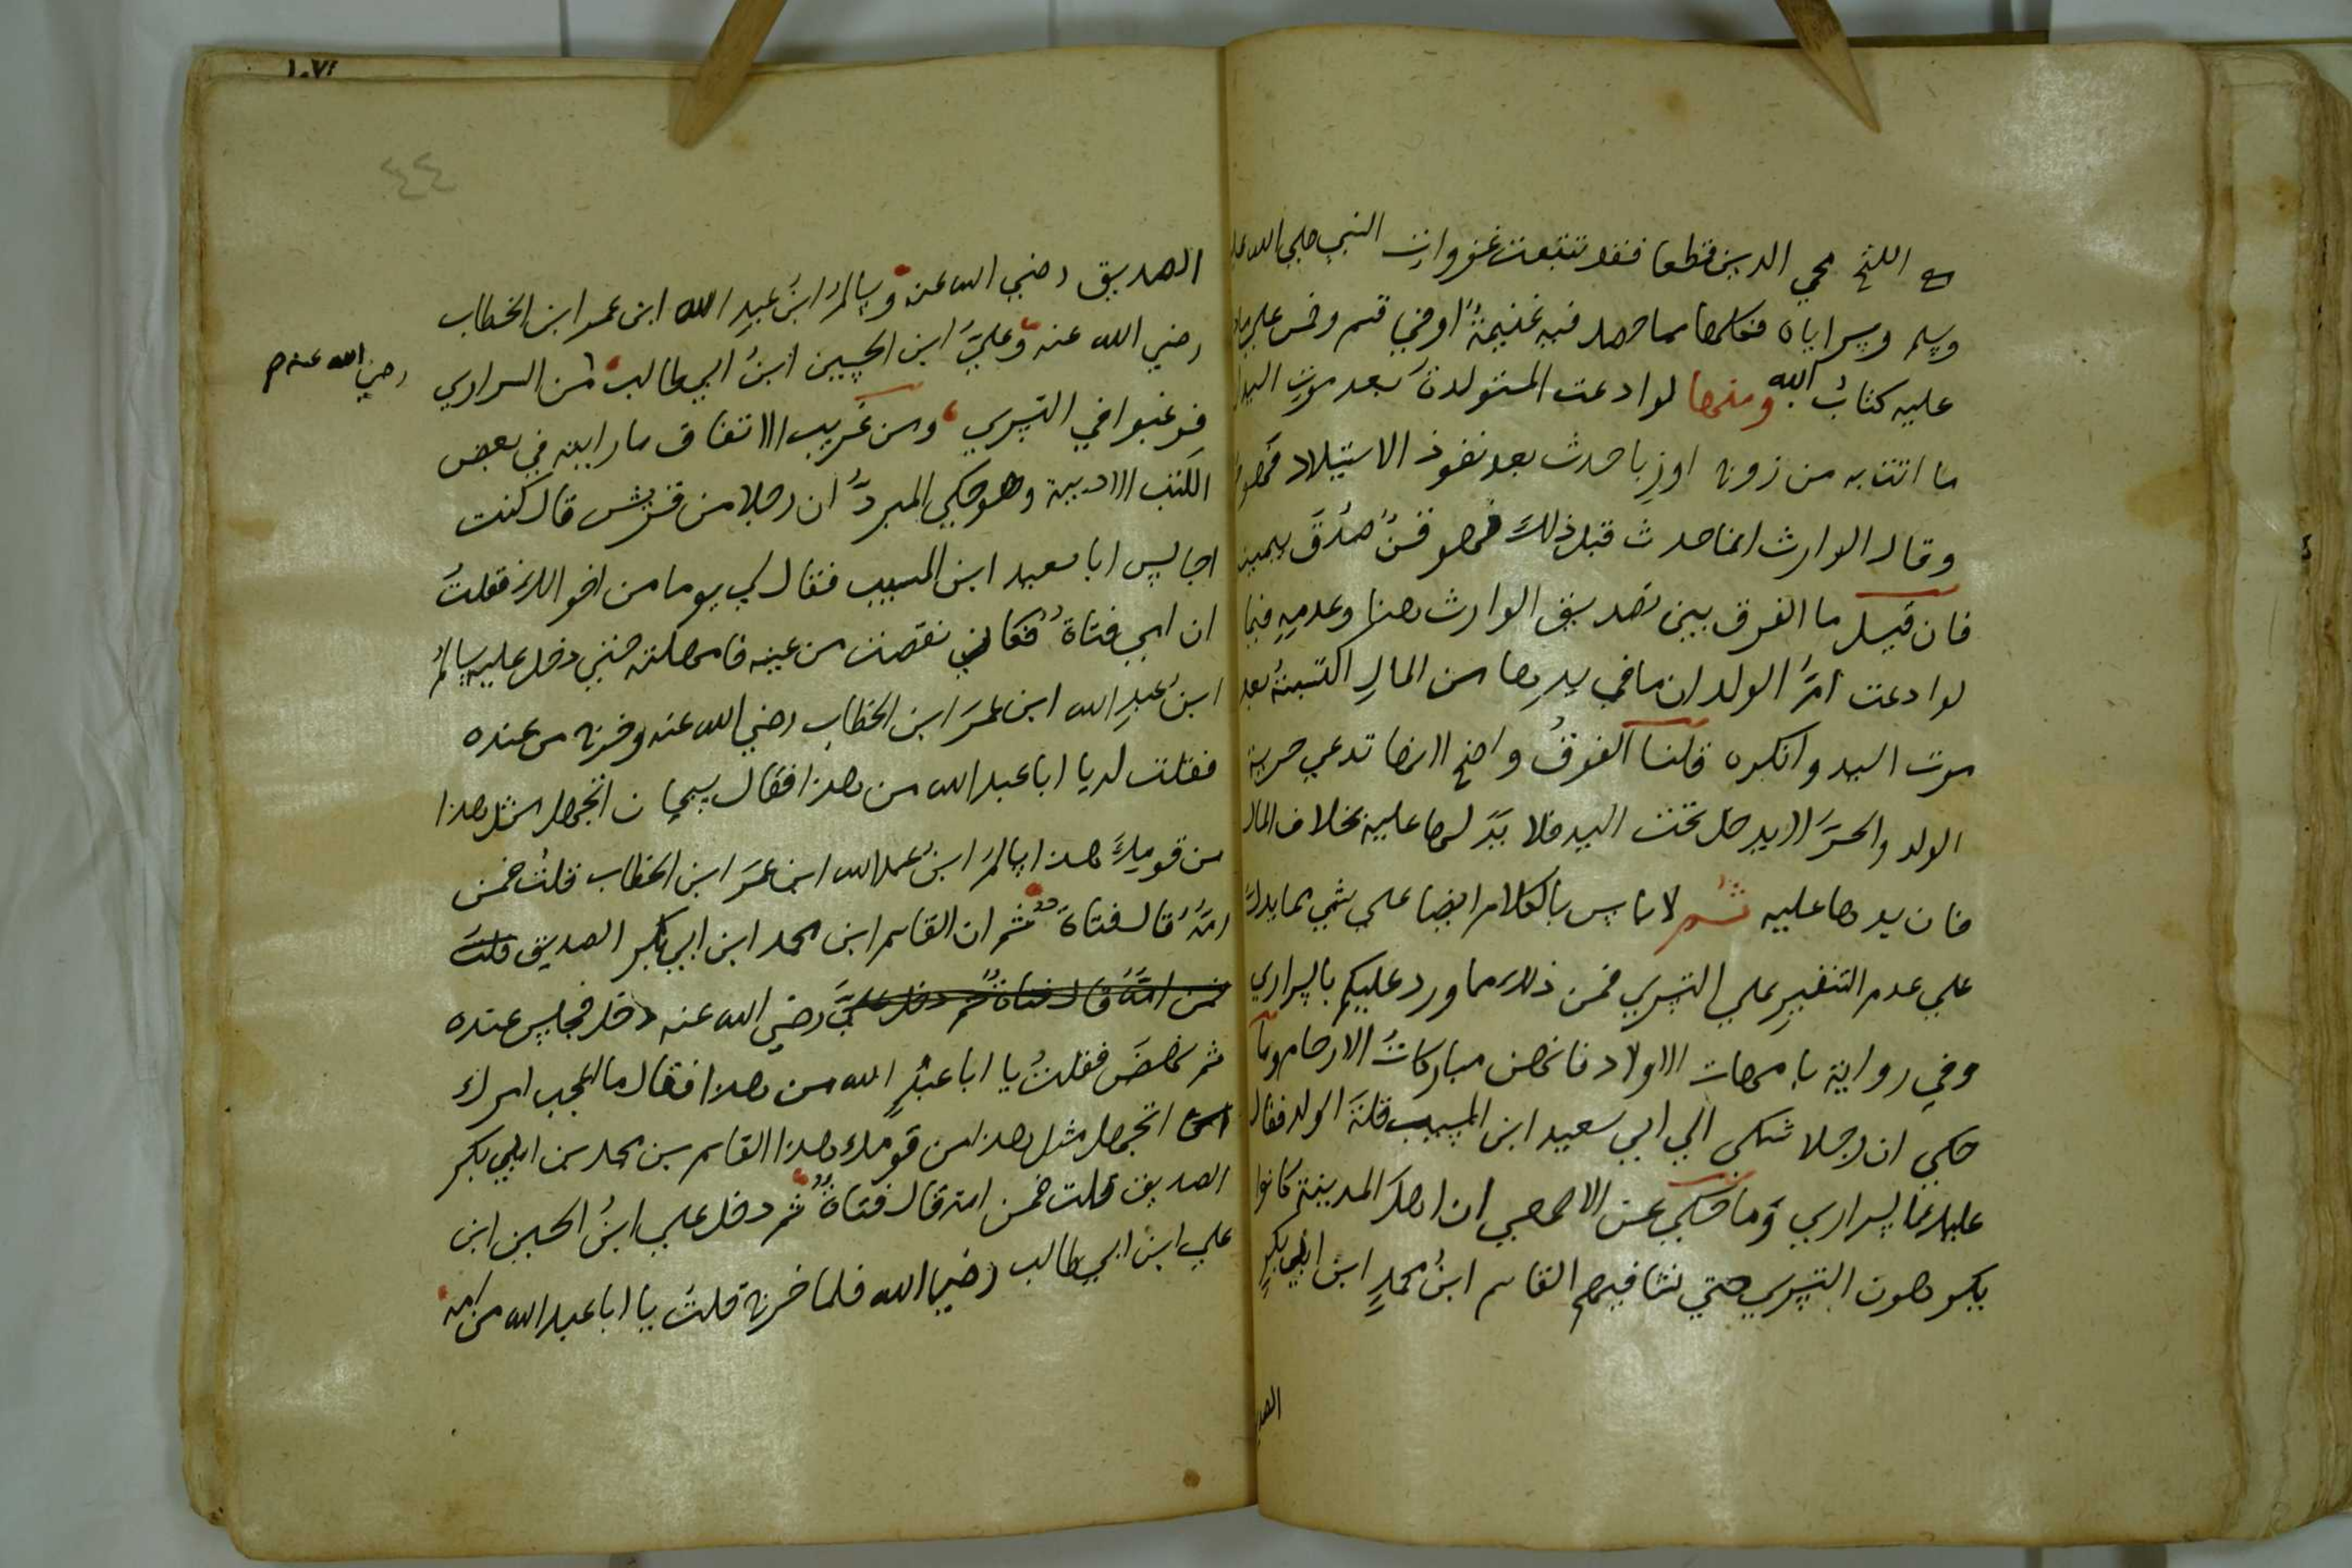 الشيخ محي الدين قطعا فقد تتبعت غزوات النبي صلى الله عليه
وسلم وسراياه فكلما مما حصل فيه غنيمةٌ اوفي قسم وخمس علي ما دل
عليه كتابُ الله ومنها لو ادعت المستولدة بعد موت السيد ان
ما اتت به من زوج او زنا حدث بعد نفوذ الاستيلاد فهو حر
وقال الوارث انما حدث قبل ذلك فهو قنٌ صُدق بيمينه
فان قيل ما الفرق بين تصديق الوارث هنا وعدمه فيما
لو ادعت امُّ الولد ان ما في يدها من المال اكتسبتهُ بعد
موت السيد وانكره قلنا الفرقُ واضح لانها تدعي حرية
الولد والحرُّ لا يدخل تحت اليد فلا يدَ لها عليه بخلاف المال
فان يدها عليه ثم لا باس بالكلام ايضا علي شي مما يدلُّ
علي عدم التنفير علي التسري فمن ذلك ما ورد عليكم بالسراري
وفي رواية بامهات الاولاد فانهن مباركاتُ الارحام وما
حكي ان رجلا شكى الي ابي سعيد ابن المسيب قلة الولد فقال
عليك بالسراري وما حكي عن الاصمعي ان اهل المدينة كانوا
يكرهون التسري حتي نشا فيهم القاسم ابنُ محمدٍ ابن ابي بكرٍ
الصد
٤٤
الصديق رضي الله عنه وسالمُ ابنُ عبدِ الله ابن عمر ابن الخطاب
رضي الله عنه وعليَّ ابن الحسين ابنُ ابي طالب من السراري رضي الله عنهم
فرغبوا في التسري ومن غريب الاتفاق ما رايته في بعض
الكتب الادبية وهو حكي المبردُ ان رجلا من قريش قال كنت
اجالس ابا سعيد ابن المسيب فقال لي يوما من اخوالك فقلتُ
ان امي فتاةٌ فكاني نقصت من عينه فامهلته حتي دخل عليه سالمُ
ابن عبدِ الله ابن عمرَ ابن الخطاب رضي الله عنه وخرج من عنده
فقلت له يا ابا عبد الله من هذا فقال سبحان اتجهل مثل هذا
من قومكَ هذا سالمُ ابن عبد الله ابن عمرَ ابن الخطاب قلتُ فمن
امهُ قال فتاةٌ ثم ان القاسم ابن محمد ابن ابي بكر الصديق قلتُ
فمن امهُ قال فتاةٌ ثم دخل عليَّ رضي الله عنه دخل فجلس عنده
ثم نهضَ فقلتُ يا ابا عبدِ الله من هذا فقال ما اعجب امرك
اتجهل مثل هذا من قومك هذا القاسم بن محمد بن ابي بكر
الصديق قلت فمن امه قال فتاةٌ ثم دخل علي ابنُ الحسين ابن
علي ابن ابي طالب رضي الله فلما خرج قلتُ يا ابا عبد الله من امه